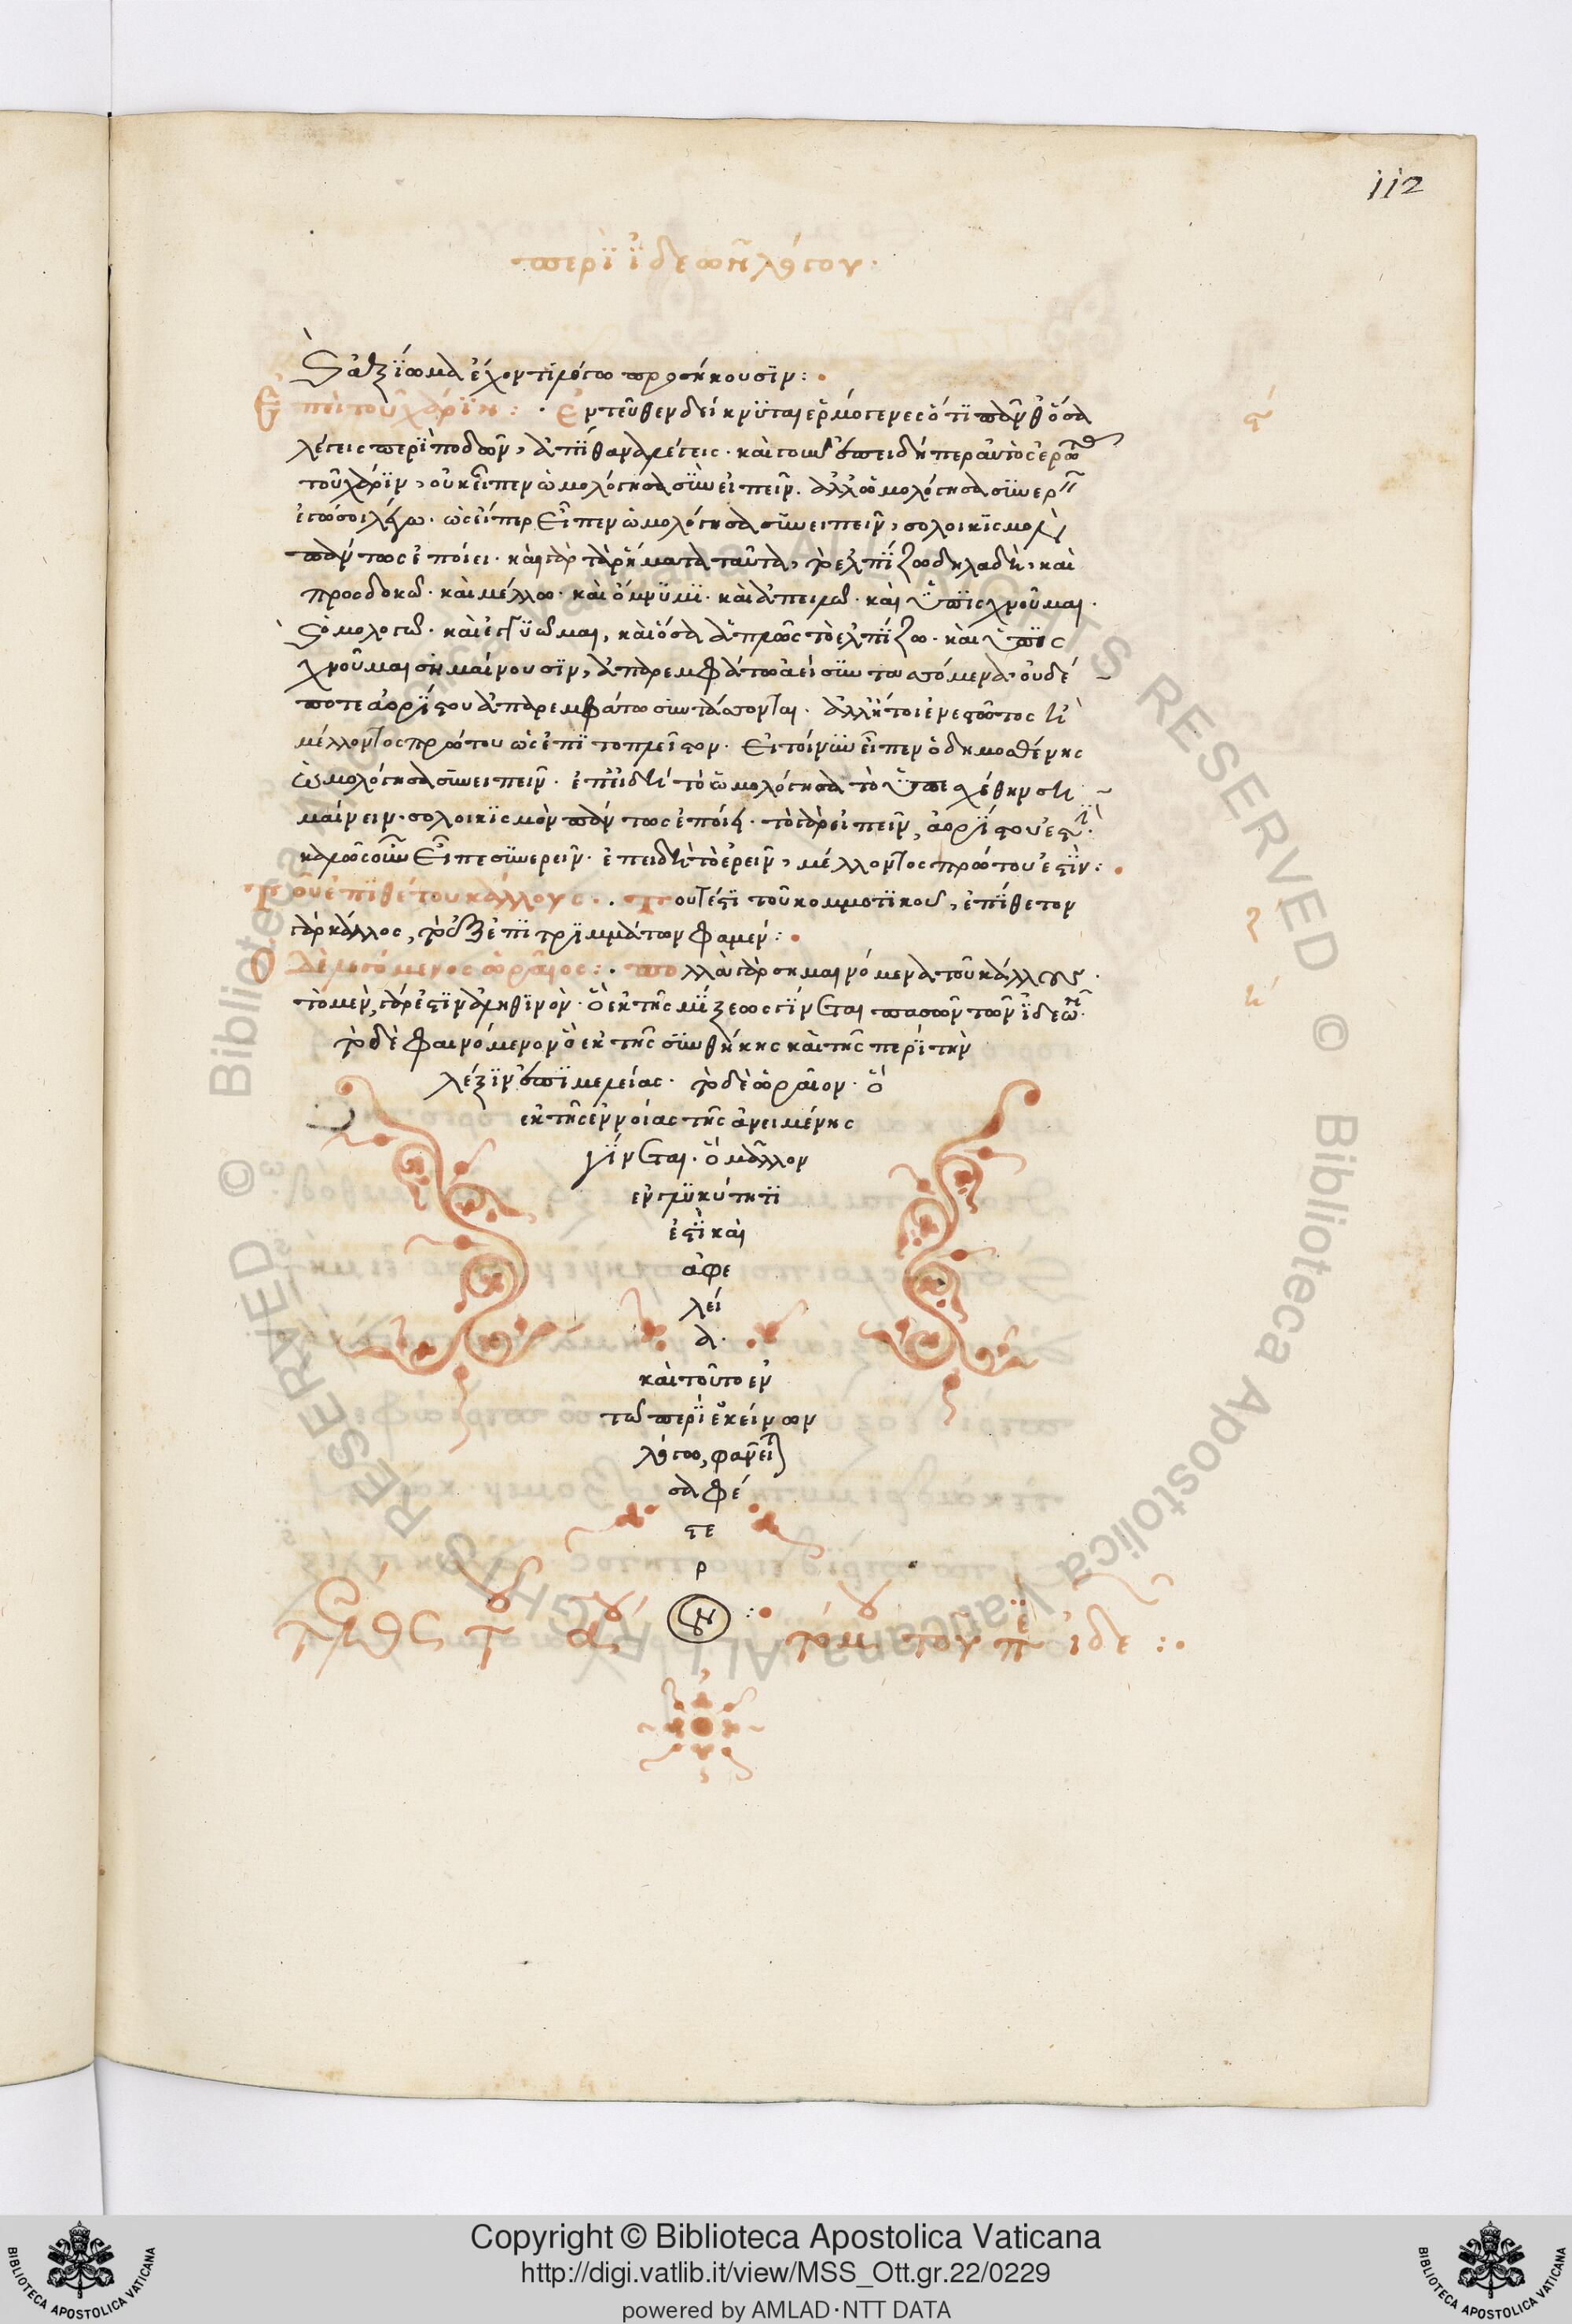 112
περὶ ἰδεῶν λόγου.
καὶ ἀξίωμα ἔχοντι λόγω προσήκουσιν:
Εἰπεῖ τοῦ χάριν: ἐντεῦθεν δείκνυται ἑρμόγενες ὅτι πάνθ ὅσα
λέγεις περὶ ποδῶν, ἀπίθανα λέγεις. καὶ τοῦδ ἐπειδήπερ αὐτὸς ἐρωτᾶς
τοῦ χάριν, οὐκ εἶπεν ὡμολόγησα σὺν εἰπεῖν. ἀλλ ὡμολόγησα σὺν ἐρεῖν
ἐγώ σοι λέγω. ὡς εἴπερ εἶπεν ὡμολόγησα συνειπεῖν, σολοικισμὸν
πάντως ἐποίει. καὶ γὰρ τὰ ῥήματα ταῦτα, τὸ ἐλπίζω δηλαδὴ, καὶ
προσδοκῶ. καὶ μέλλω. καὶ ὄμνυμι. καὶ ἀπειλῶ. καὶ ὑπισχνοῦμαι.
καὶ ὁμολογῶ. καὶ ἐγγυῶμαι, καὶ ὅσα ἁπλῶς τὸ ἐλπίζω. καὶ ὑπισ
χνοῦμαι σημαίνουσιν, ἀπαρεμφάτω ἀεὶ συντασσόμενα. οὐδέ
ποτε ἀορίστου ἀπαρεμφάτω συντάσσονται. ἀλλ ἤτοι ἐνεστῶτος ἢ
μέλλοντος πρώτου ὡς ἐπὶ τὸ πλεῖστον. Εἰ τοίνυν εἶπεν ὁ δημοσθένης
ὡμολόγησα συνειπεῖν. ἐπειδὴ τὸ ὡμολόγησα τὸ ὑπεσχέθην ση
μαίνειν. σολοικισμὸν πάντως ἐποίει. τὸ γὰρ εἰπεῖν, ἀορίστου ἐστί.
καλῶς οὖν εἶπε συνερεῖν. ἐπειδὴ τὸ ἐρεῖν, μέλλοντος πρώτου ἐστίν:
Τοῦ ἐπιθέτου κάλλους. Τουτέστι τοῦ κομμωτικοῦ, ἐπίθετον
γὰρ κάλλος, τὸ ἐξ ἐπιτριμμάτων φαμέν:
Ὁ λεγόμενος ὡραῖος: πολλὰ γὰρ σημαινόμενα τοῦ κάλλους.
τὸ μὲν, γὰρ ἐστὶν ἀληθινὸν. ὃ ἐκ τῆς μίξεως γίνεται πασῶν τῶν ἰδεῶν.
τὸ δὲ φαινόμενον ὃ ἐκ τῆς συνθήκης καὶ τῆς περὶ τὴν
λέξιν ἐπιμελείας. τὸ δὲ ὡραῖον. ὃ
ἐκ τῆς ἐννοίας τῆς ἀνειμένης
γίνεται. ὃ μᾶλλον
ἐν γλυκύτητι
ἐστὶ καὶ
ἀφε
λεί
α.
καὶ τοῦτο ἐν
τῶ περὶ ἐκείνων
λόγω, φανεῖται
σαφέ
στε
ρ
ον:
τέλος τοῦ α τόμου τοῦ περὶ ἰδε:
ϛ
ζ
η
Copyright © Biblioteca Apostolica Vaticana
http://digi.vatlib.it/view/MSS_Ott.gr.22/0229
powered by AMLAD·NTT DATA
BIBLIOTECA APOSTOLICA VATICANA
BIBLIOTECA APOSTOLICA VATICANA
© Biblioteca Apostolica Vaticana ALL RIGHTS RESERVED © Biblioteca Apostolica Vaticana ALL RIGHTS RESERVED